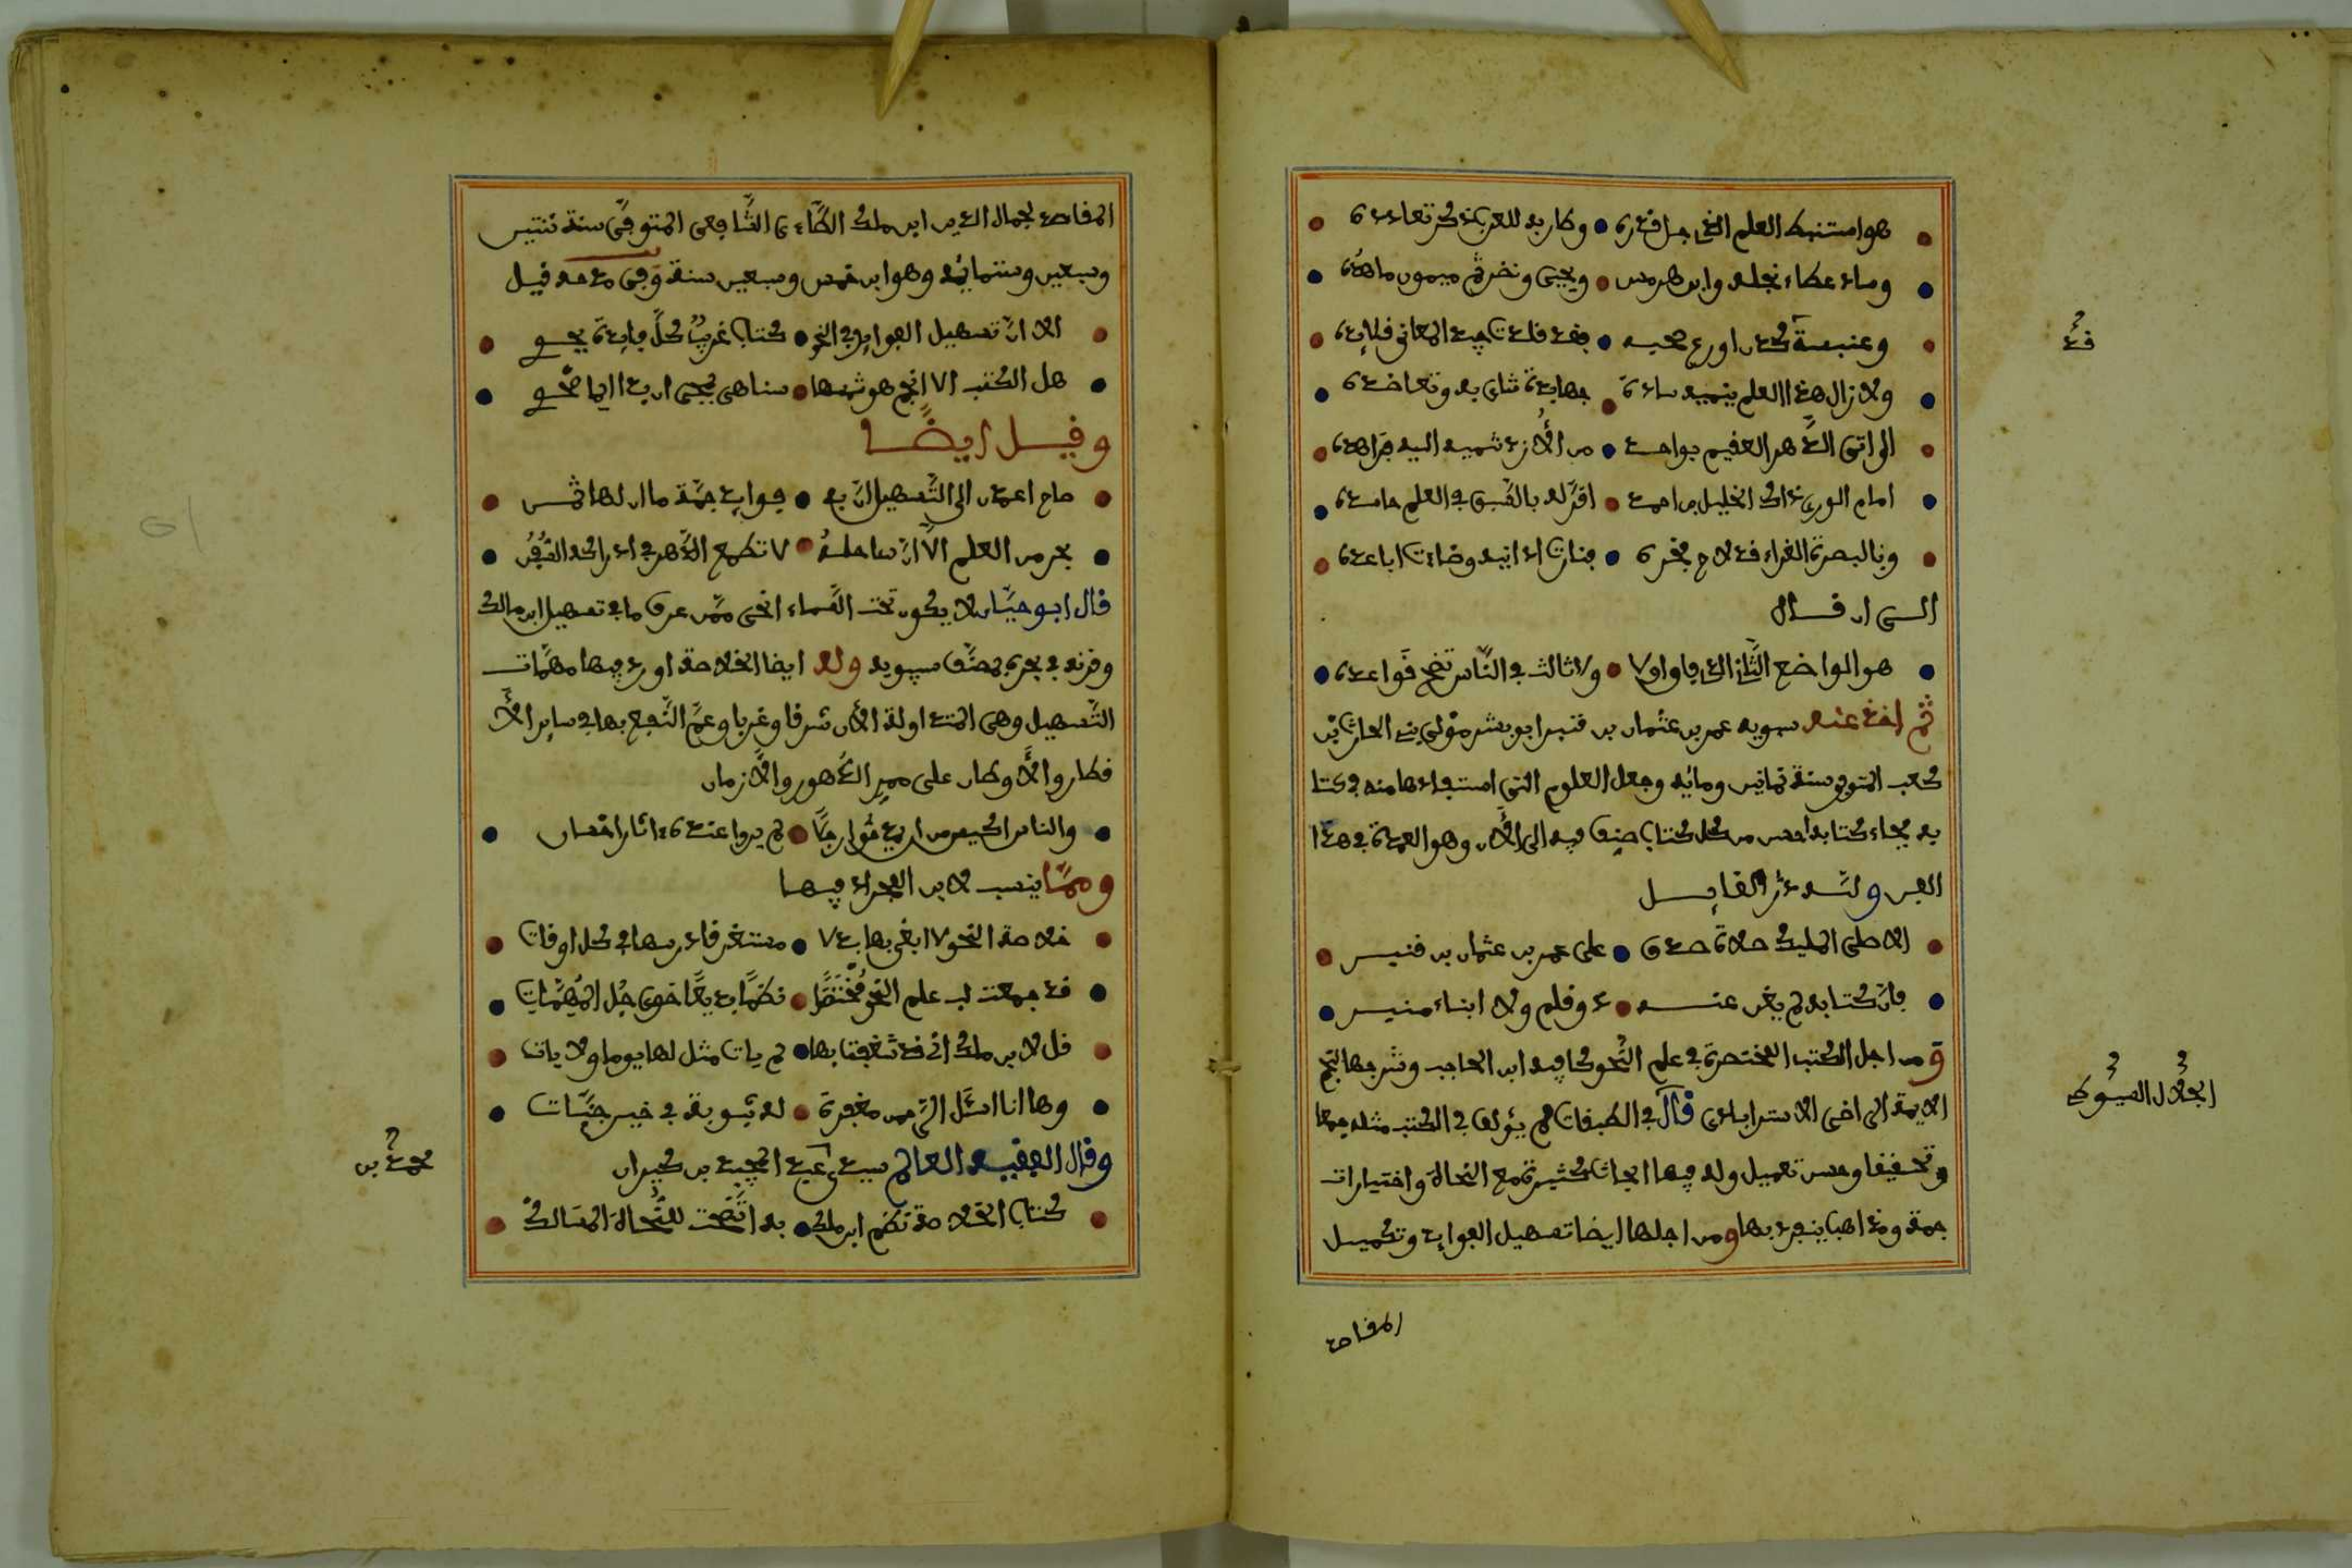 هو استنبط العلم الذي جل قدره • وطار به للعرب ذكر تعاوده
وساد عطاء نجله وابن هرمس • ويحيى ونضر ثم ميمون ماهده
وعنبسة قد كان اورع صحبه • فقد قلدت جيد المعاني قلايده
ولا زال هذا العلم ينميه سادة • جهابدة تنائى به وتعاضده
الى ان اتى الدهر العقيم بواحد • من الأزد تنميه اليه فراهده
امام الورى ذاك الخليل بن احمد • اقر له بالسبق في العلم حاسده
وبالبصرة الغراء قد لاح فجره • فنارت ادانيه وضاءت اباعده
الى ان قال
هو الواضع الثاني الذي فاق اولا • ولا ثالث في الناس تنحى قواعده
ثم اخذ عنه سيبويه عمر بن عثمان بن قنبر ابو بشر مولى بني الحارث بن
كعب المتوفى سنة ثمانين ومائه وجعل العلوم التي استفادها منه في كتا
به فجاء كتابه احسن من كل كتاب صنف فيه الى الأن وهو العمدة في هذا
الفن ولله در القايل
الا صلى المليك صلاة صدق • على عمر بن عثمان بن قنبر
فان كتابه لم يغن عنه • ذو قلم ولا ابناء منبر
ومن اجل الكتب المختصرة في علم النحو كافيه ابن الحاجب وشرحها لنجم
الايمة الرضي الاسترابادي قال في الطبقات لم يؤلف في الكتب مثله جمعا
وتحقيقا وحسن تعليل وله فيها ابحاث كثيرة مع النحاة واختيارات
جمة ومذاهب ينفرد بها ومن اجلها ايضا تسهيل الفوايد وتكميل
المقاصد
قد
الجلال السيوطي
المقاصد لجمال الدين ابن ملك الطاءي الشافعي المتوفى سنة ثنتين
وسبعين وستمائة وهو ابن خمس وسبعين سنة وفى مدحه قيل
الا ان تسهيل الفوايد في النحو • كتاب غريب كل فايدة يحوي
هل الكتب الا انجم هو شمسها •
وقيل ايضا
صاح اعمدن الى التسهيل ان به • فوايد جمة ما ان لها ثمن
بحر من العلم الا ان ساحله • لا تطمع الدهر في ادراكه السفن
قال ابو حيان لا يكون تحت السماء انحى ممن عرف ما في تسهيل ابن مالك
وقرنه في بحره بمصنف سيبويه وله ايضا الخلاصة اورد فيها مهمات
التسهيل وهي المتداولة الأن شرقا وغربا وعم النفع بها في ساير الأ
قطار والأوطان على ممر الدهور والازمان
• والناس اكيس من ان يمدحوا رجلا • لم يروا عنده اثار احسان
ومما ينسب لابن الفجراد فيها
خلاصة النحو لا ابغي بها بدلا • مستغرقا درسها في كل اوقات
قد جمعت لب علم النحو مختصرا • نظما بديعا حوى جل المهمات
قل لابن ملك اني قد شغفت بها • لم يات مثل لها يوما ولا يات
وها انا اسئل الرحمن مغفرة • له تبوية في خير جنات
وقال الفقيه العالم سيدي عبد المجيد بن كيران
كتاب الخلاصة نظم ابن ملك • به اتضحت للنحاة المسالك
محمد بن